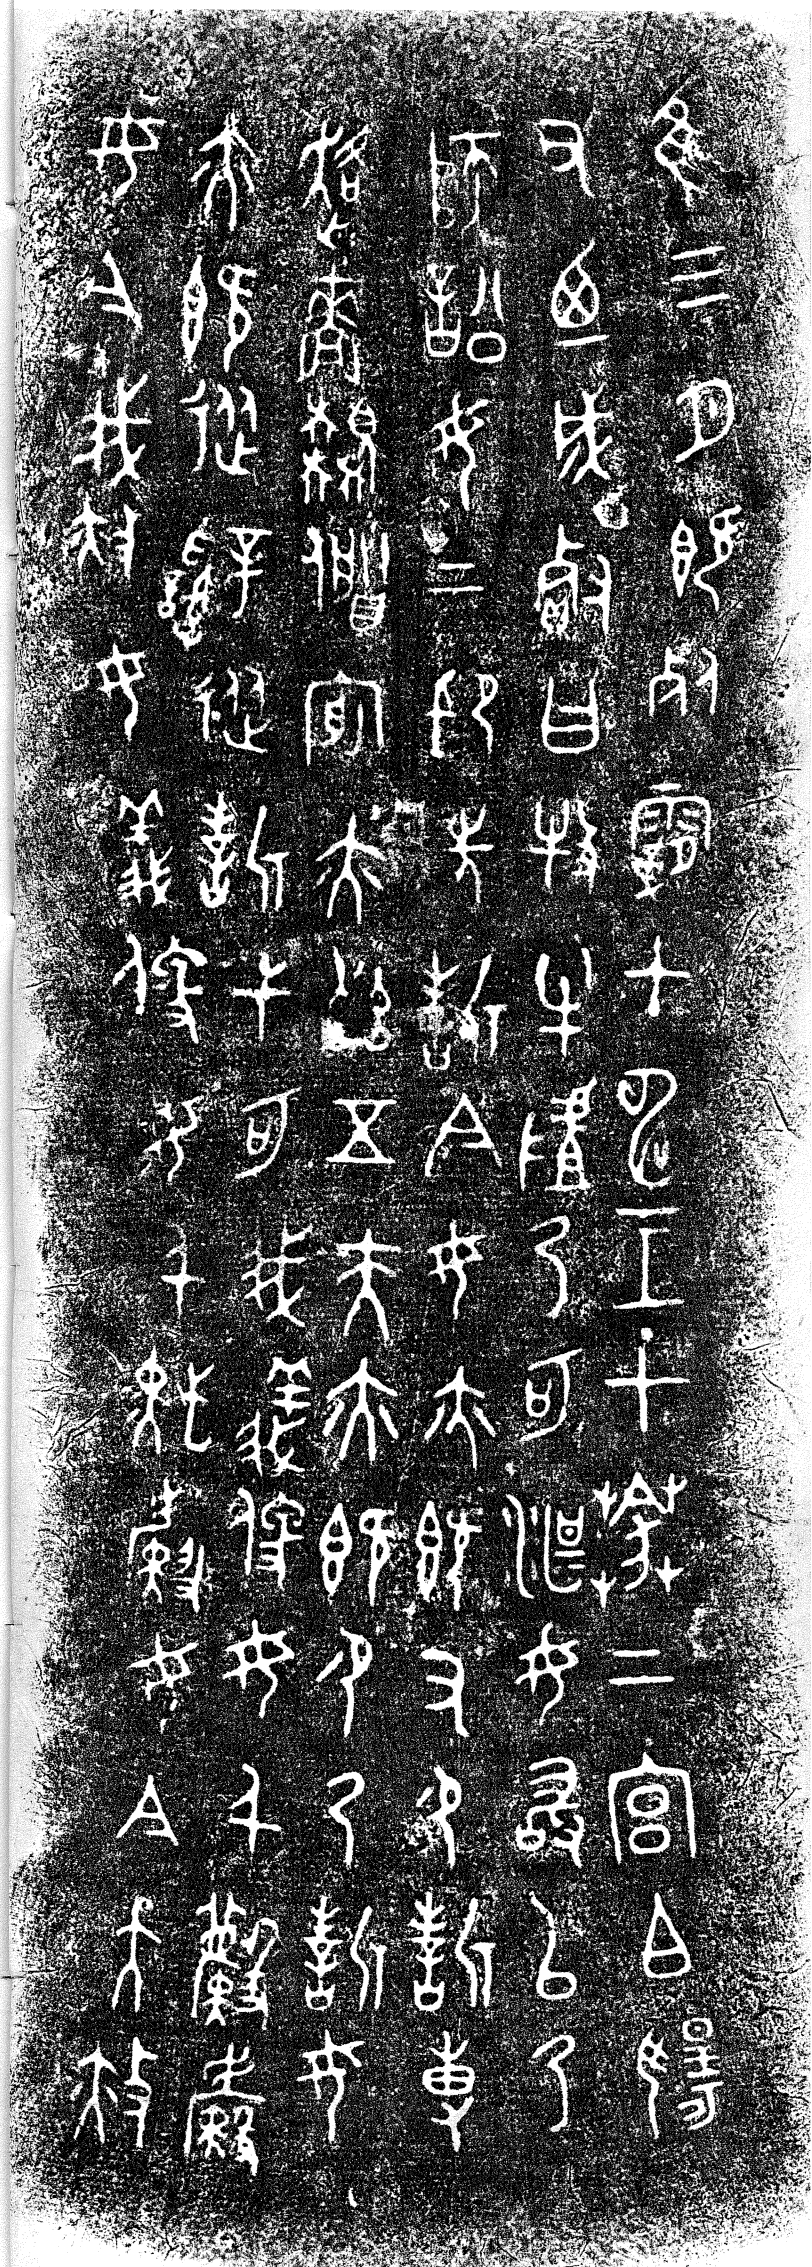 隹三月既死霸甲申王才𦎫上宮白揚
父廼成曰牧牛𠭯乃可湛女敢以乃
師訟女上𠨘先誓今女亦既又御誓尃
嗇覩𠑇亦茲五夫亦既御乃誓女
亦既從辭從誓弋可我義鞭女千
女今我赦女義鞭女千黜女今大赦